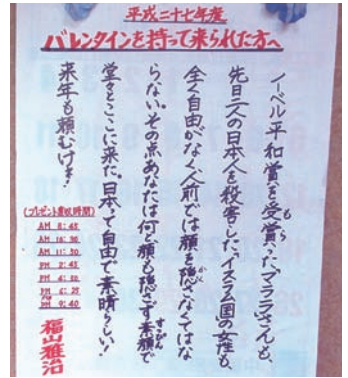 平成二十七年度
バレンタインを持って来られた方へ
ノーベル平和賞を受賞ったマララさんも、
先日二人の日本人を殺害した、イスラム国の女性も、
全く自由がなく人前では顔を隠さなくてはな
らない。その点あなたは何と顔も隠さず素顔で
堂々とここに来た。日本って自由で素晴らしい!
来年も頼むけぇ!
(プレゼント受収時間)
AM 8:45
AM 10:30
AM 11:50
PM 2:45
PM 4:20
PM 6:25
PM 9:40
福山雅治